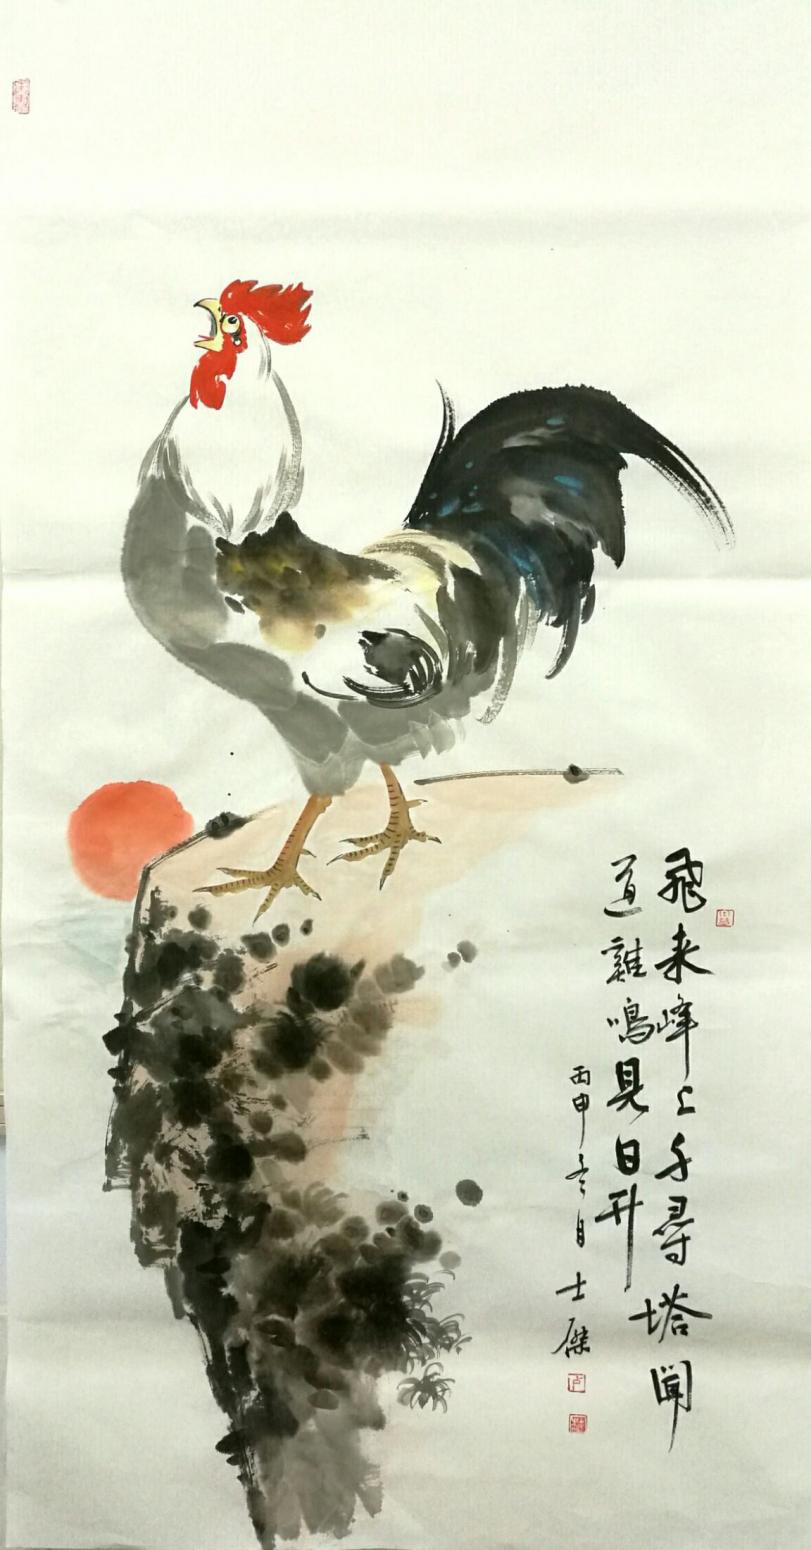 飛来峰上千尋塔聞
道雞鳴見日升
丙申冬月士傑